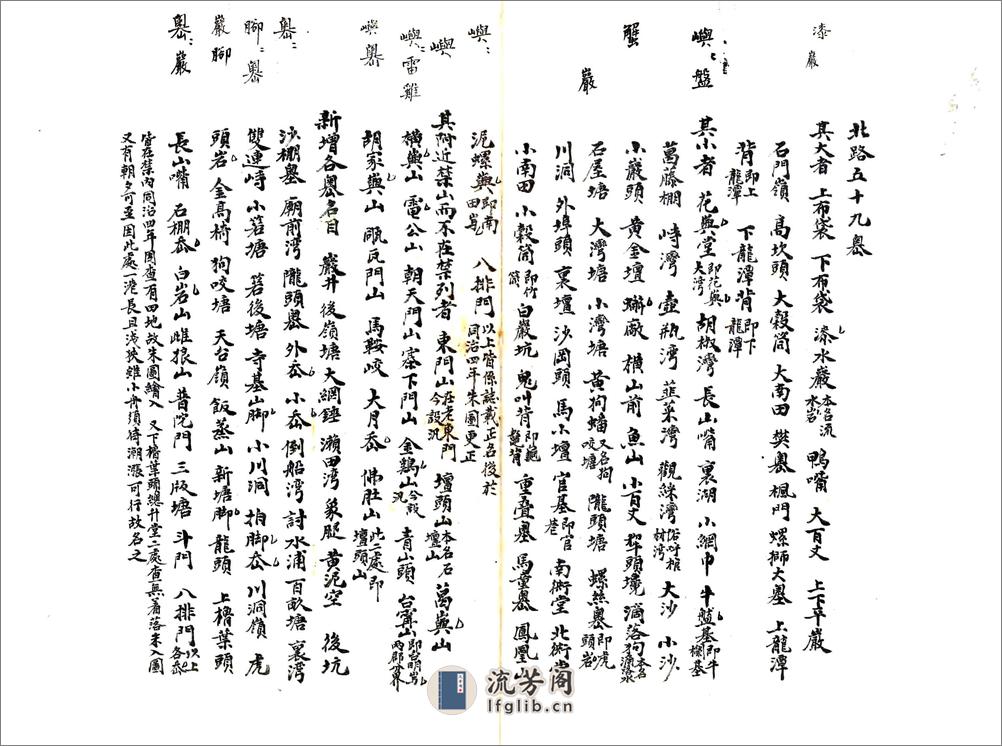 北路五十九嶴
其大者 上布袋 下布袋 漆水巖 本名流水岩 鴨嘴 大百丈 上下平巖
石門嶺 高坎頭 大穀筒 大南田 樊嶴 楓門 螺獅大嶴 上龍潭
背 即上龍潭 下龍潭背 即下龍潭
其小者 花與堂 即花與大灣 胡椒灣 長山嘴 裏湖 小網巾 牛盤基 即牛欄基
萬藤棚 峙灣 壺瓶灣 韭菜灣 觀綵灣 大沙 小沙
小巖頭 黃金壇 蠏廠 橫山前 魚山 小百丈 犂頭境 滴落狗
石屋塘 大灣塘 小灣塘 黃狗蟠 又名狗咬塘 隴頭塘 螺絲嶴 即虎頭岩
川洞 外埠頭 裏壇 沙岡頭 馬小壇 官基 即官巷 南術堂 北術堂
小南田 小穀筒 即竹筒 白巖坑 鬼叫背 重疊嶴 馬童嶴 鳳凰山
泥螺與 即南田嶴 八排門 以上皆係誌載正名後於同治四年朱圖更正
其附近禁山而不在禁列者 東門山 在老東門今設汛 壇頭山 本名石壇山 葛與山
橫與山 電公山 朝天門山 寨下門山 金鷄山 今設汛 青山頭 台寗山 即台明山兩郡分界
胡家與山 瓯瓦門山 馬鞍咬 大月岙 佛肚山 此二處即壇頭山
新增各嶴名目 巖井 後嶺塘 大網錘 瀨田灣 象腿 黃泥空 後坑
沙棚嶴 廟前灣 隴頭嶴 外岙 小岙 倒船灣 討水浦 百畝塘 裏灣
雙連峙 小箬塘 箬後塘 寺基山脚 小川洞 拍脚岙 川洞嶺 虎
頭岩 金高椅 狗咬塘 天台嶺 飯蒸山 新塘脚 龍頭 上櫓葉頭
長山嘴 石棚岙 白岩山 雌狼山 普陀門 三版塘 斗門 八排門 以上各岙
皆在禁內同治四年因查有田地故朱圖繪入 又下櫓葉頭總升堂二處查無著落未入圖
又有朝夕可至因此處一港長且浅狹雖小舟須候潮漲可行故名之
漆巖
嶼：盤
蟹
巖
嶼：
嶼
嶼：雷雞
嶼嶴
嶴：
腳：嶴
巖腳
嶴：巖
流芳阁
lfglib.cn